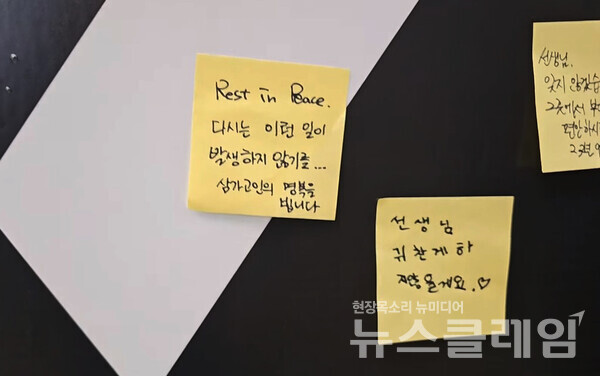 Rest in Peace.
다시는 이런 일이
발생하지 않기를...
삼가고인의 명복을
빕니다
선생님
귀찮게 하
올게요.♡
선생님.
잊지 않겠습
그곳에서
편안하시
현장목소리 뉴미디어
뉴스클레임